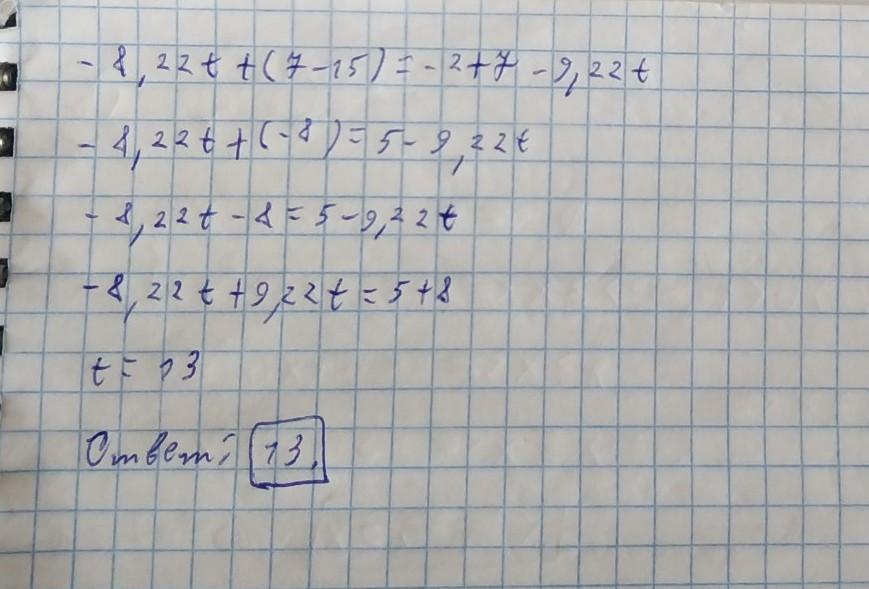 - 8,22t + (7 - 15) = - 2 + 7 - 9,22t
- 8,22t + (-8) = 5 - 9,22t
- 8,22t - 8 = 5 - 9,22t
- 8,22t + 9,22t = 5 + 8
t = 13
Ответ: 13.